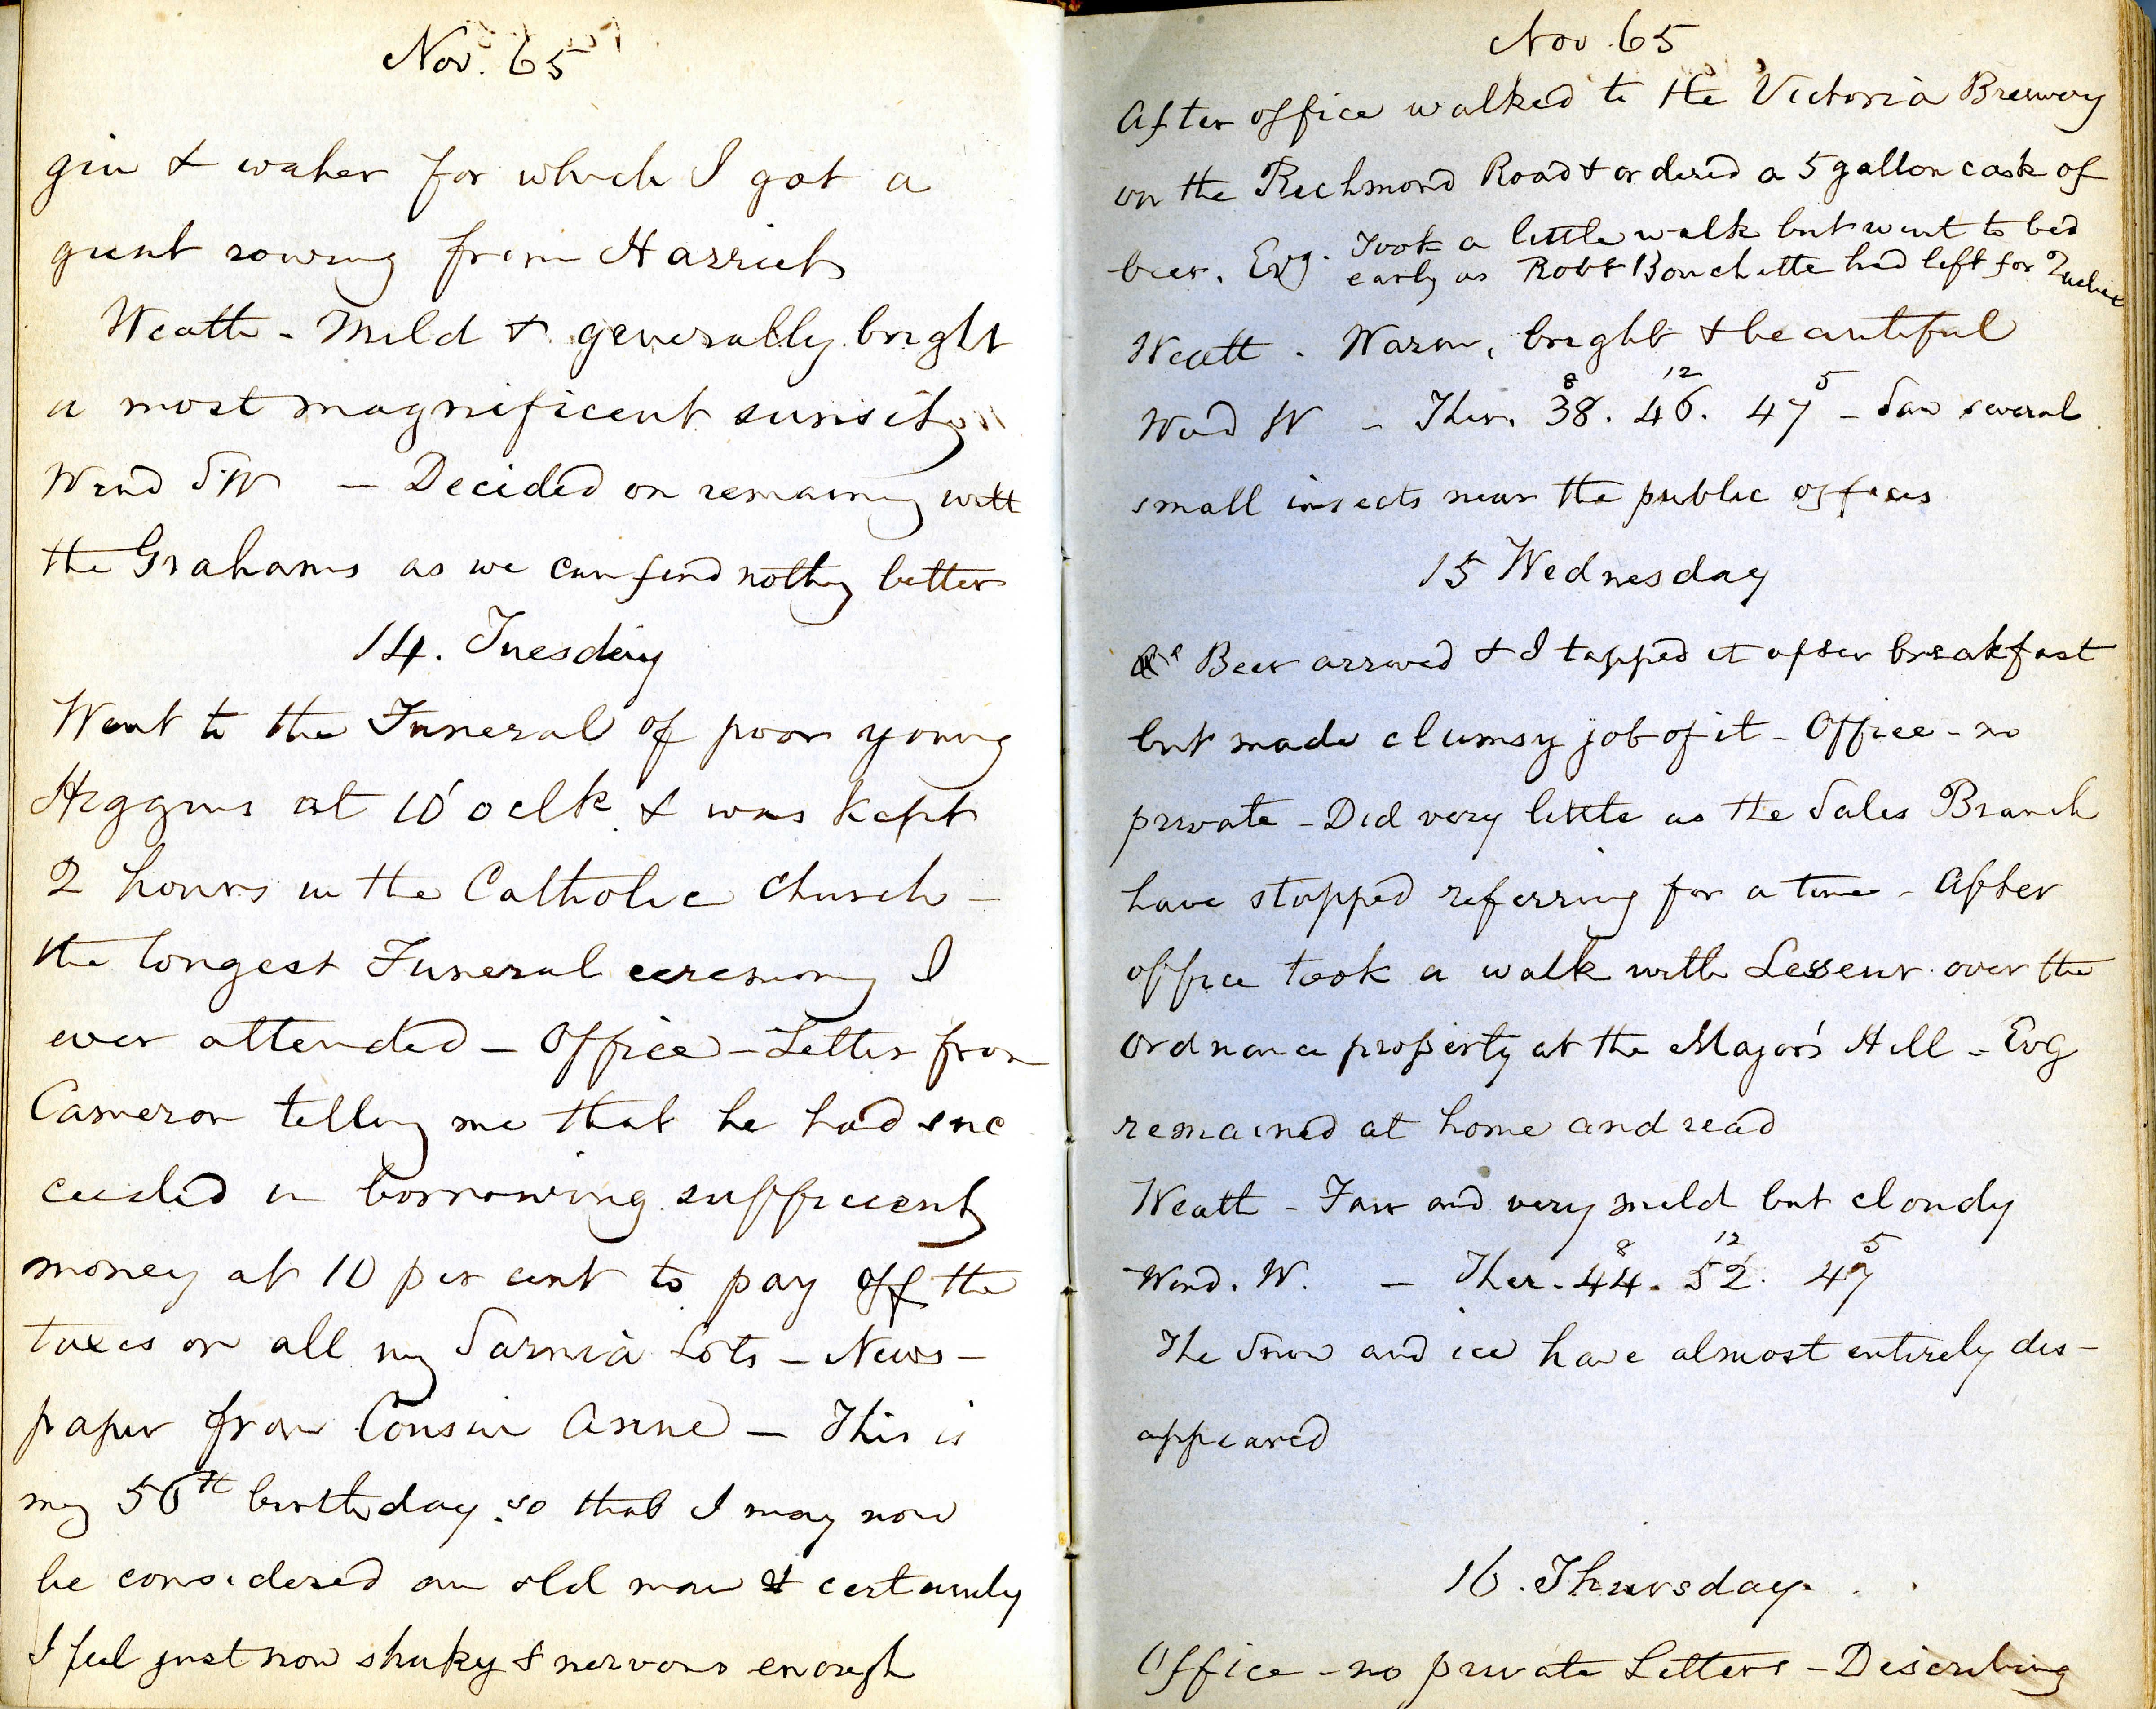 Nov. 65
gin & water for which I got a
great rowing from Harriet
Weath - Mild & generally bright
a most magnificent sunset
Wind SW — Decided on remaining with
the Grahams as we can find nothing better
14. Tuesday
Went to the Funeral of poor young
Higgins at 10 o clk & was kept
2 hours in the Catholic Church —
the longest Funeral ceremony I
ever attended — Office — Letter from
Cameron telling me that he had suc
ceeded in borrowing sufficient
money at 10 per cent to pay off the
taxes on all my Sarnia Lots — News -
paper from Cousin Anne — This is
my 50th birthday so that I may now
be considered an old man & certainly
I feel just now shaky & nervous enough
Nov. 65
After office walked to the Victoria Brewery
on the Richmond Road & ordered a 5 gallon cask of
beer. Evg. Took a little walk but went to bed
early as Robt Bouchette had left for Quebec
Weath. Warm, bright & beautiful
Wind W - Ther. 38. 46. 47 - Saw several
8 12 5
small insects near the public offices
15 Wednesday
Beer arrived & I tapped it after breakfast
but made clumsy job of it - Office - no
private - Did very little as the Sales Branch
have stopped referring for a time - After
office took a walk with Lesueur over the
Ordnance property at the Major's Hill - Evg
remained at home and read
Weath - Fair and very mild but cloudy
Wind. W. — Ther. 44. 52. 47
8 12 5
The Snow and ice have almost entirely dis-
appeared
16. Thursday.
Office - no private Letters - Describing